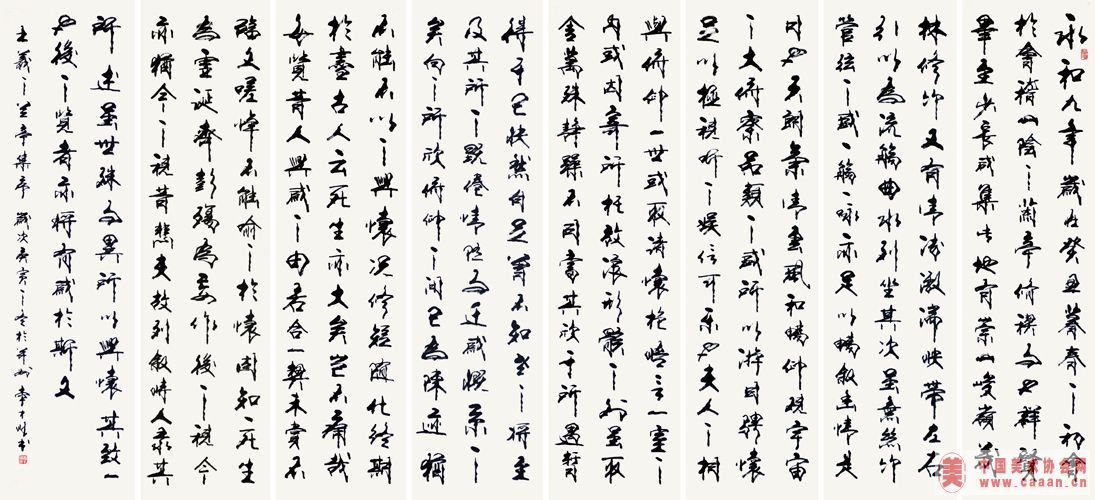 永和九年歲在癸丑暮春之初會
於會稽山陰之蘭亭脩禊事也群賢
畢至少長咸集此地有崇山峻嶺茂
林修竹又有清流激湍映帶左右
引以為流觴曲水列坐其次雖無絲竹
管弦之盛一觴一詠亦足以暢敘幽情是
日也天朗氣清惠風和暢仰觀宇宙
之大俯察品類之盛所以游目騁懷
足以極視聽之娛信可樂也夫人之相
與俯仰一世或取諸懷抱悟言一室之
內或因寄所托放浪形骸之外雖取
舍萬殊靜躁不同當其欣于所遇暫
得于己快然自足曾不知老之將至
及其所之既倦情隨事遷感慨係之
矣向之所欣俯仰之間已為陳迹猶
不能不以之興懷況修短隨化終期
於盡古人云死生亦大矣豈不痛哉
每覽昔人興感之由若合一契未嘗不
臨文嗟悼不能喻之於懷固知一死生
為虛誕齊彭殤為妄作後之視今
亦猶今之視昔悲夫故列敘時人錄其
所述雖世殊事異所以興懷其致一
也後之覽者亦將有感於斯文
王羲之蘭亭集序 歲次庚寅之冬於
中国美术协会网
www.caaan.cn